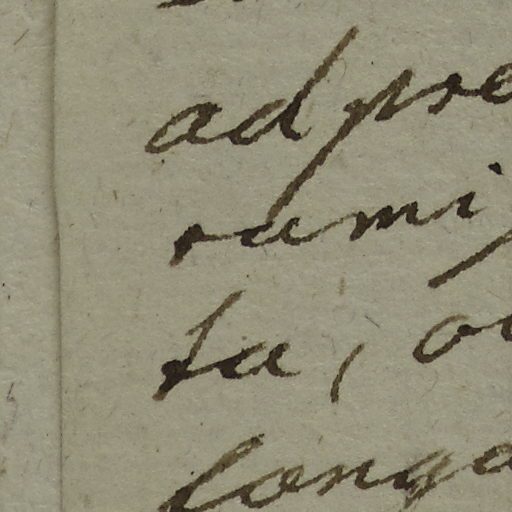 adpre
rami
ta, o
longa